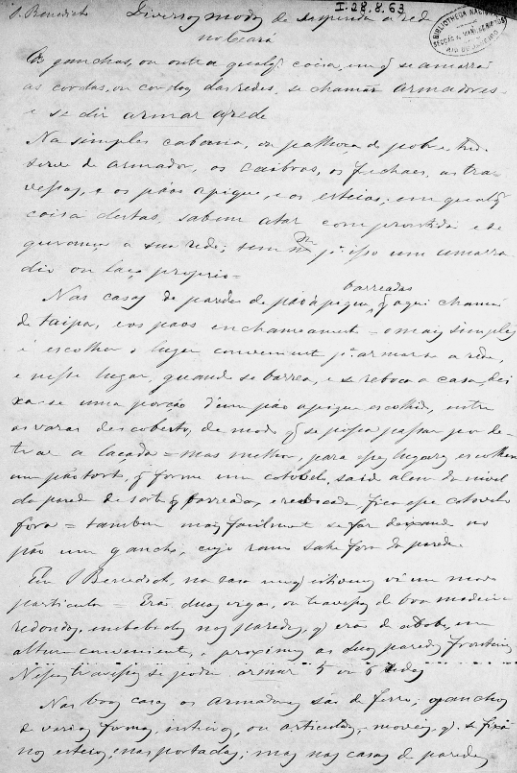 S. Benedicto Diversos modos de segurar a rede I-28.8.63
no Ceará
BIBLIOTHECA NACIONAL
SECÇÃO DE MANUSCRIPTOS
RIO DE JANEIRO
Os ganchos, ou outra qualqr coisa, em q se amarrão
as cordas, ou cordoes das redes, se chamão armadores
e se diz armar a rede
Na simples cabana, ou palhoça do pobre, tudo
serve de armador, os caibros, os frechaes, as tra
vessas, e os páos apique, e os esteios; em qualqr
coisa destas, sabem atar com promptidão e se
gurança a sua rede; sem pa isso um amarra
dio ou laço proprio =
Nas casas de paredes de páo a pique, barreadas q aqui chamão
de taipa, e os páos enchameamento = o mais simples
é escolher o lugar conveniente pa armarse a rede,
e neste lugar, quando se barrea, e se reboca a casa, dei
xa-se uma porção d'um páo apique escolhido, entre
as varas descoberto, de modo q se possa passar por de
traz a laçada = mas melhor, para esses lugares escolhem
um páo torto, q forme um cotovelo, saido alem do nivel
da parede de sorte q barreada, e rebocada, fica esse cotovelo
fora = tambem mais facilmente se faz deixando no
páo um gancho, cujo ramo sahe fora da parede
Em S Benedicto, na casa em q estivemos vi um modo
particular = Erão duas vigas, ou travessas de boa madeira
redondas, embebidas nas paredes, q erão de adobe, em
altura conveniente, e proximas as duas paredes fronteiras
Nestas travessas se podem armar 5 ou 6 redes
Nas boas casas os armadores são de ferro; ganchos
de varias formas, inteiros, ou articulados, moveis, q. se fixão
nos esteios, nas portadas; mas nas casas de paredes